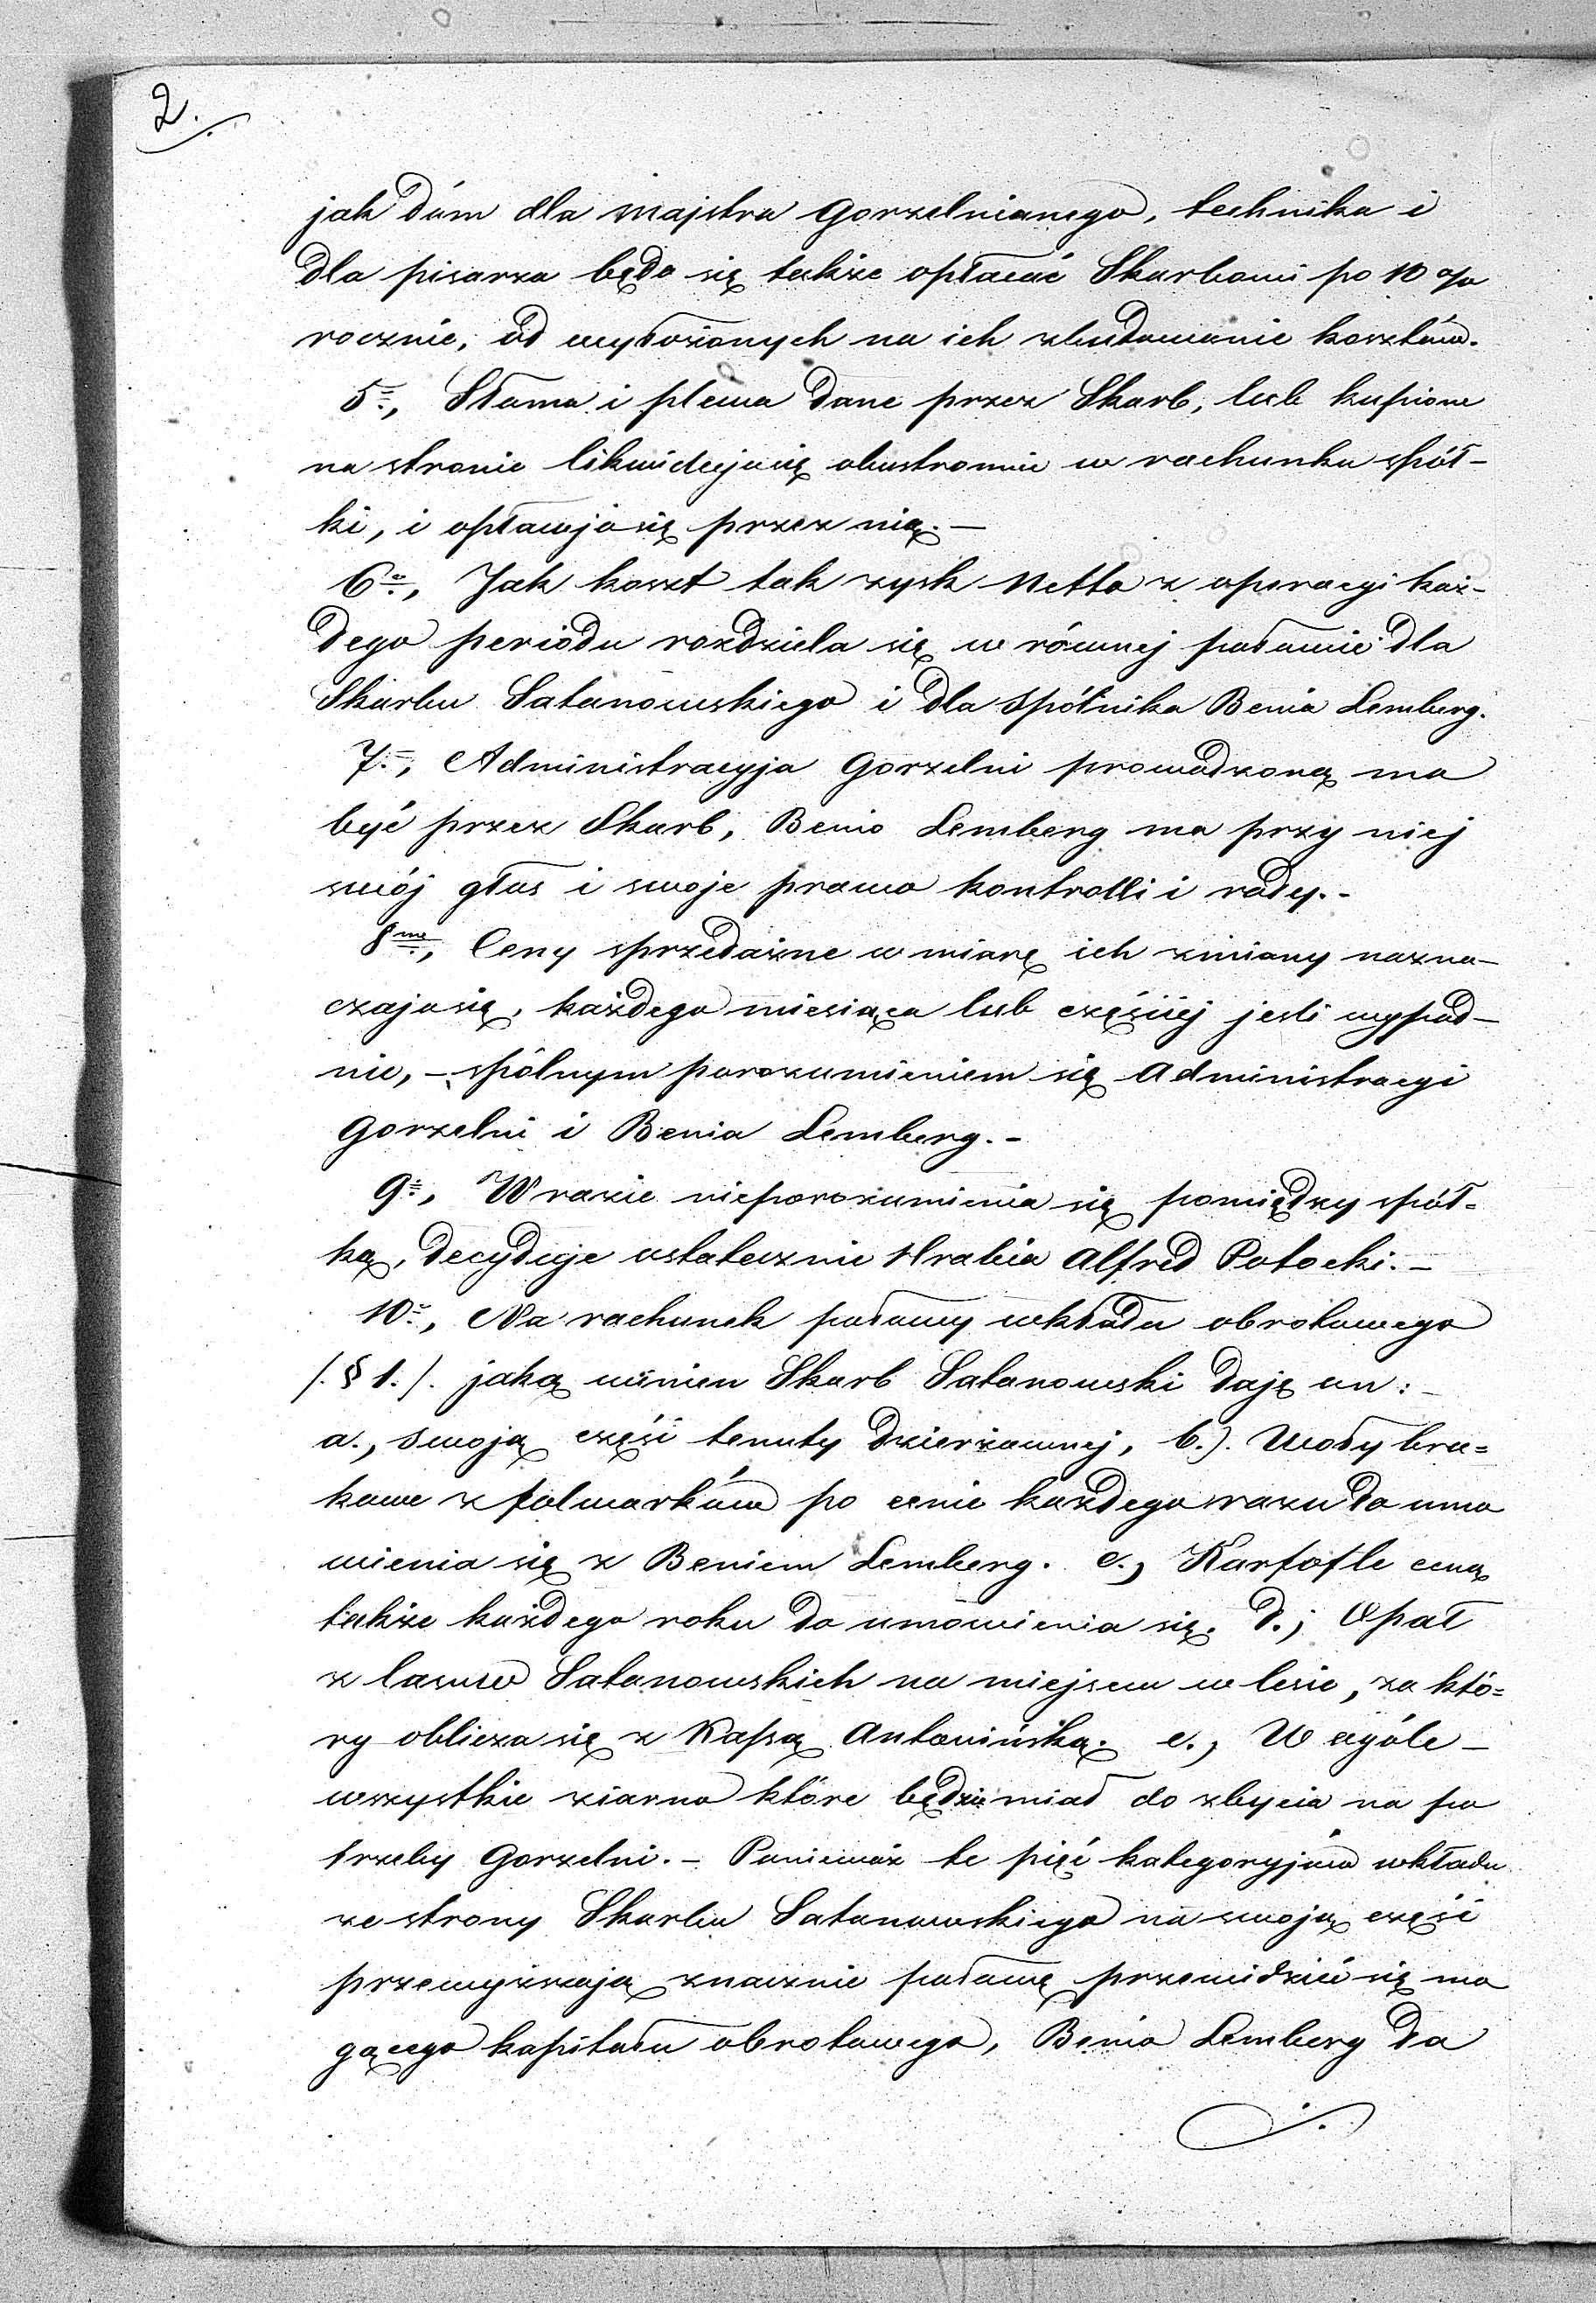 2.
jak dóm dla majstra Gorzelnianego, technika i
dla pisarza będo się także opłacać Skarbowi po 10 %
rocznie, od wyłożonych na ich zbudowanie kosztów.
5., Słoma i plewa dane przez Skarb, lub kupione
na stronie likwidują się obustronnie w rachunku spół-
ki, i opłacują się przez nią. —
6., Jak koszt tak zysk Netto z operacyi każ-
dego periodu rozdziela się w równej połowie dla
Skarbu Satanowskiego i dla Spólnika Benia Lemberg.
7., Administracyja Gorzelni prowadzoną ma
być przez Skarb, Benio Lemberg ma przy niej
swój głos i swoje prawo kontrolli i rady. -
8me, Ceny sprzedażne w miarę ich zmiany nazna-
czają się, każdego miesiąca lub częściej jesli wypad-
nie, - spólnym porozumieniem się Administracyi
Gorzelni i Benia Lemberg. -
9., W razie nieporozumienia się pomiędzy spół=
ką, decyduje ostatecznie Hrabia Alfred Potocki. —
10., Na rachunek połowy wkładu obrotowego
/. § 1. /. jaką winien Skarb Satanowski daję on: -
a., swoją część tenuty dzierżawnej, b.). Woły bra=
kowe z folwarków po cenie każdego razu do umo
wienia się z Beniem Lemberg. c., Kartofle ceną
także każdego roku do umówienia się. d.; Opał
z lasów Satanowskich na miejscu w lesie, za któ=
ry oblicza się z Kassą Antonińską. e., W ogóle —
wszystkie ziarno które będzie miał do zbycia na po
trzeby Gorzelni. - Ponieważ te pięć kategoryjów wkładu
ze strony Skarbu Satanowskiego na swoją część
przewyższają znacznie połowę przewidzieć się mo
gącego kapitału obrotowego, Benio Lemberg da